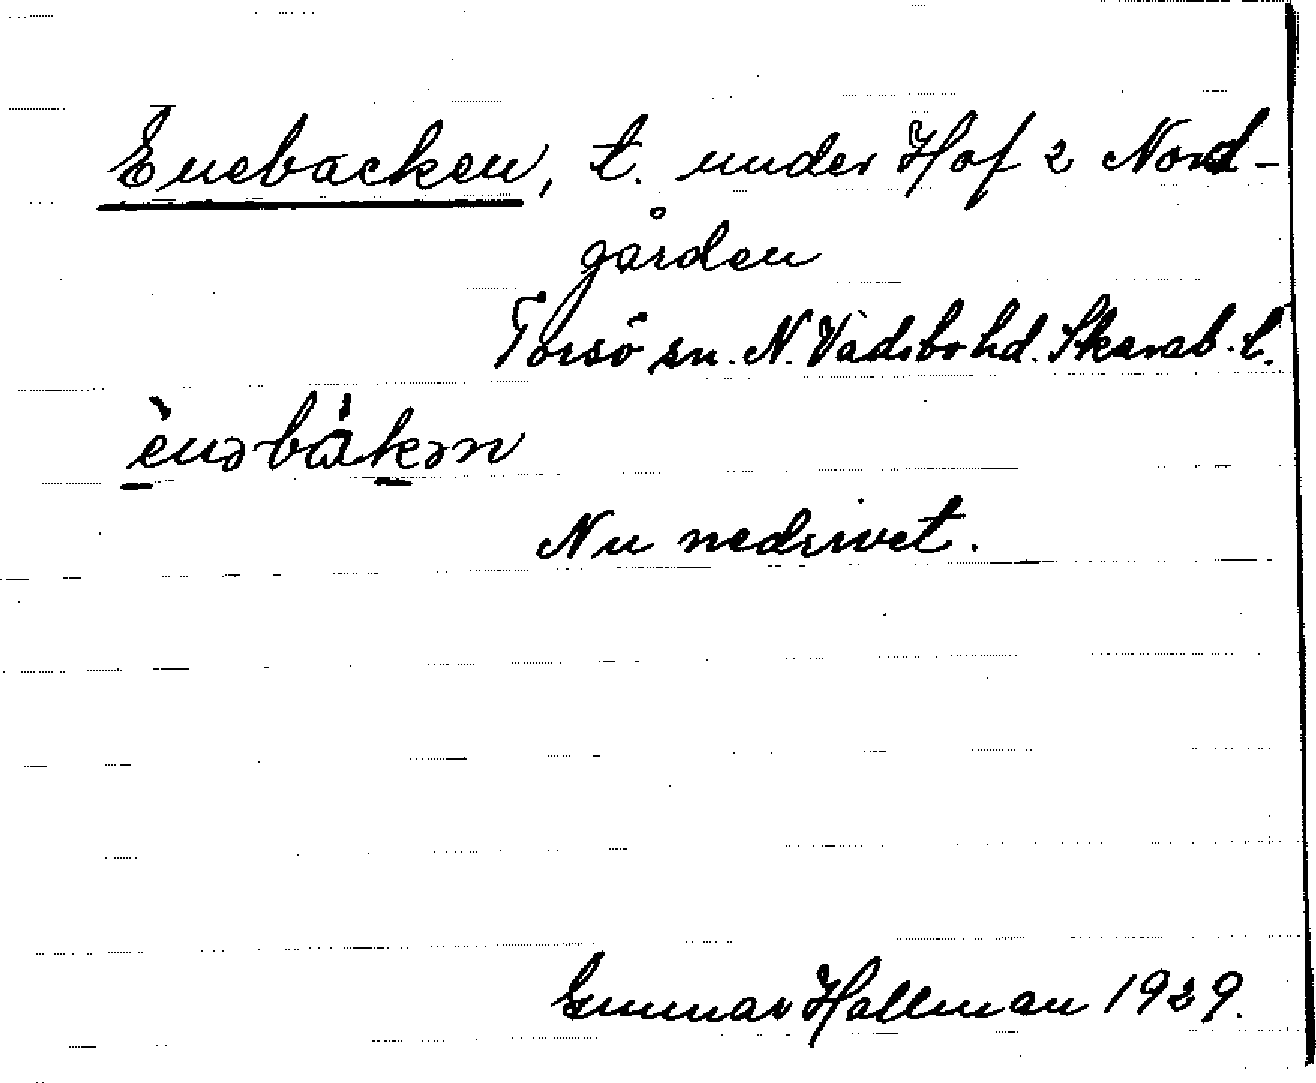 Enebacken, t. under Hof 2 Nord-
gården
Torsö sn. N. Vadsbo hd. Skarab. l.
ènəbàkən
Nu nedrivet.
Gunnar Hallman 1929.